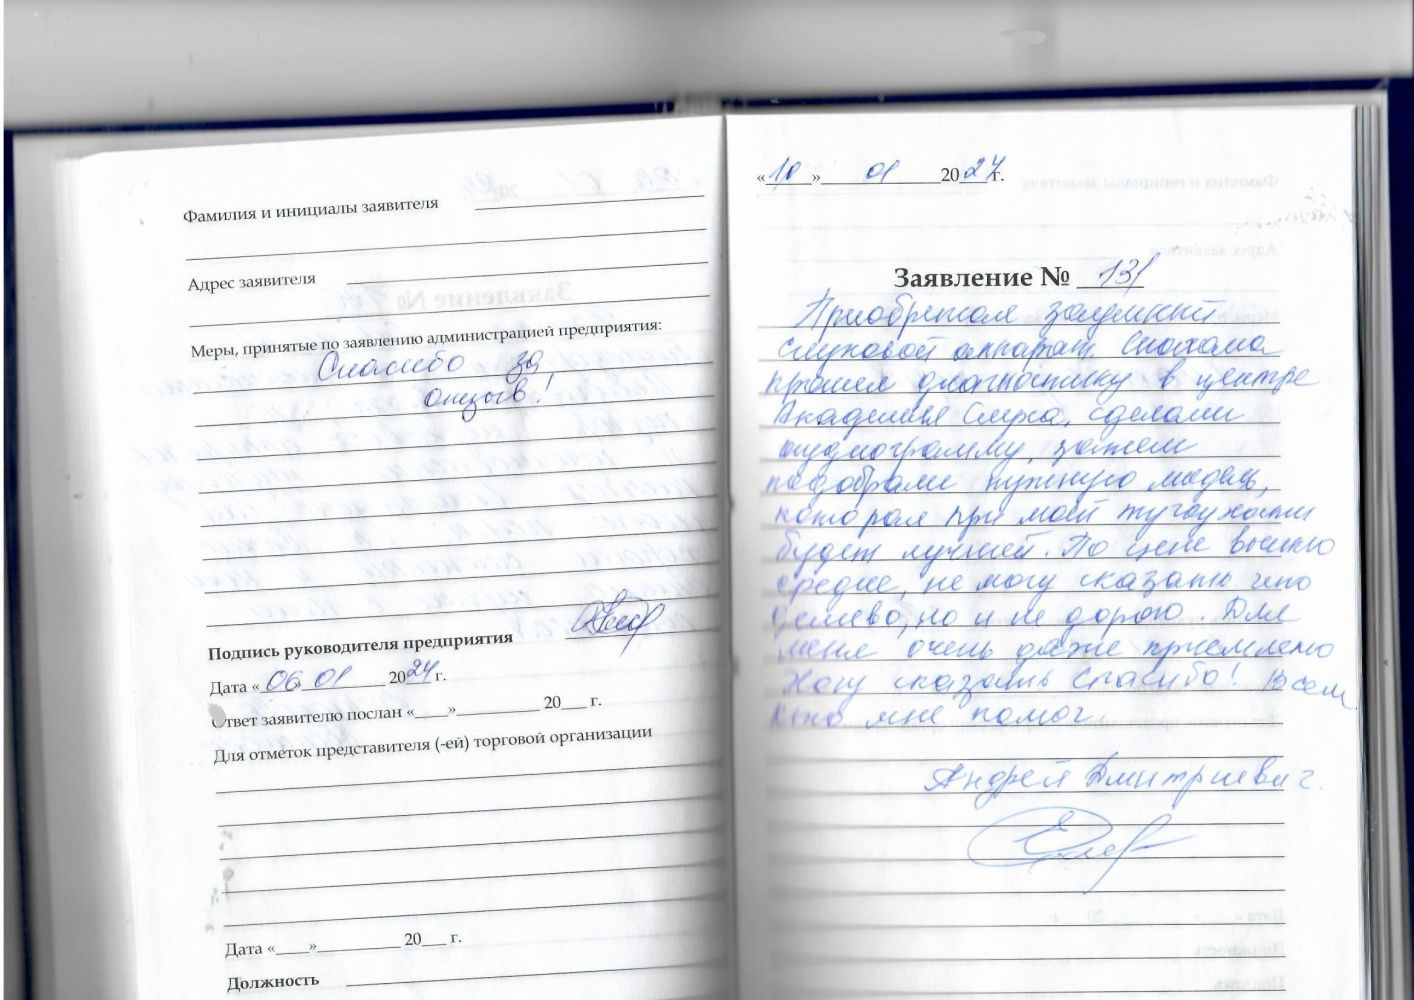 Фамилия и инициалы заявителя
Адрес заявителя
Меры, принятые по заявлению администрацией предприятия:
Спасибо за
отзыв!
Подпись руководителя предприятия
Дата «06» 01 2024 г.
Ответ заявителю послан «____»__________ 20___ г.
Для отметок представителя (-ей) торговой организации
Дата «____»__________ 20___ г.
Должность
«10» 01 2024 г.
Заявление № 131
Приобретал заушный
слуховой аппарат. Сначала
прошел диагностику в центре
Академия Слуха, сделали
аудиограмму, затем
подобрали нужную модель,
которая при моей тугоухости
будет лучшей. По цене вышло
средне, не могу сказать что
дешево, но и не дорого. Для
меня очень даже приемлемо
Хочу сказать Спасибо! Всем
кто мне помог.
Андрей Дмитриевич.